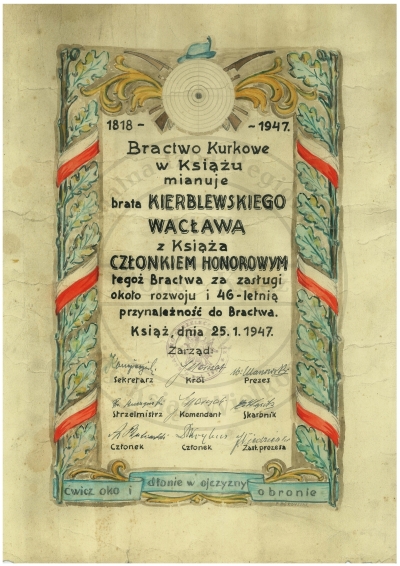 1818 - - 1947.
Bractwo Kurkowe
w Książu
mianuje
brata KIERBLEWSKIEGO
WACŁAWA
z Książa
CZŁONKIEM HONOROWYM
tegoż Bractwa za zasługi
około rozwoju i 46-letnią
przynależność do Bractwa.
Książ, dnia 25.1.1947.
Zarząd:
Sekretarz Król Prezes
Strzelmistrz Komendant Skarbnik
Członek Członek Zast. prezesa
Ćwicz oko i dłonie w ojczyzny obronie